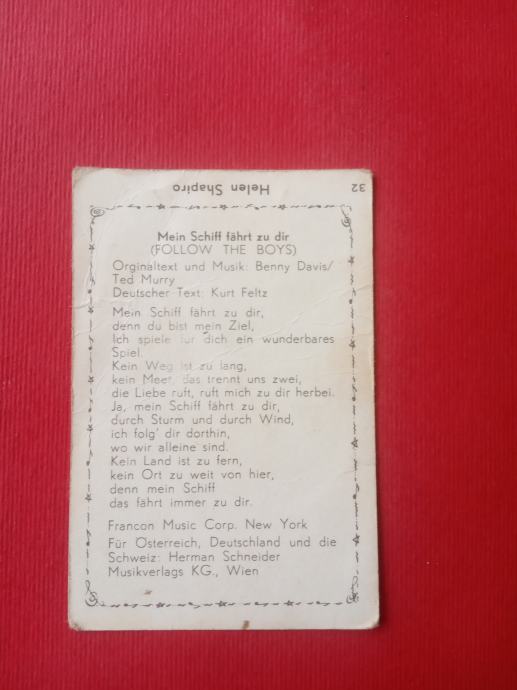 32
Helen Shapiro
Mein Schiff fährt zu dir
(FOLLOW THE BOYS)
Orginaltext und Musik: Benny Davis/
Ted Murry
Deutscher Text: Kurt Feltz
Mein Schiff fährt zu dir,
denn du bist mein Ziel,
Ich spiele für dich ein wunderbares
Spiel.
Kein Weg ist zu lang,
kein Meer, das trennt uns zwei,
die Liebe ruft, ruft mich zu dir herbei.
Ja, mein Schiff fährt zu dir,
durch Sturm und durch Wind,
ich folg' dir dorthin,
wo wir alleine sind.
Kein Land ist zu fern,
kein Ort zu weit von hier,
denn mein Schiff
das fährt immer zu dir.
Francon Music Corp. New York
Für Österreich, Deutschland und die
Schweiz: Herman Schneider
Musikverlags KG., Wien